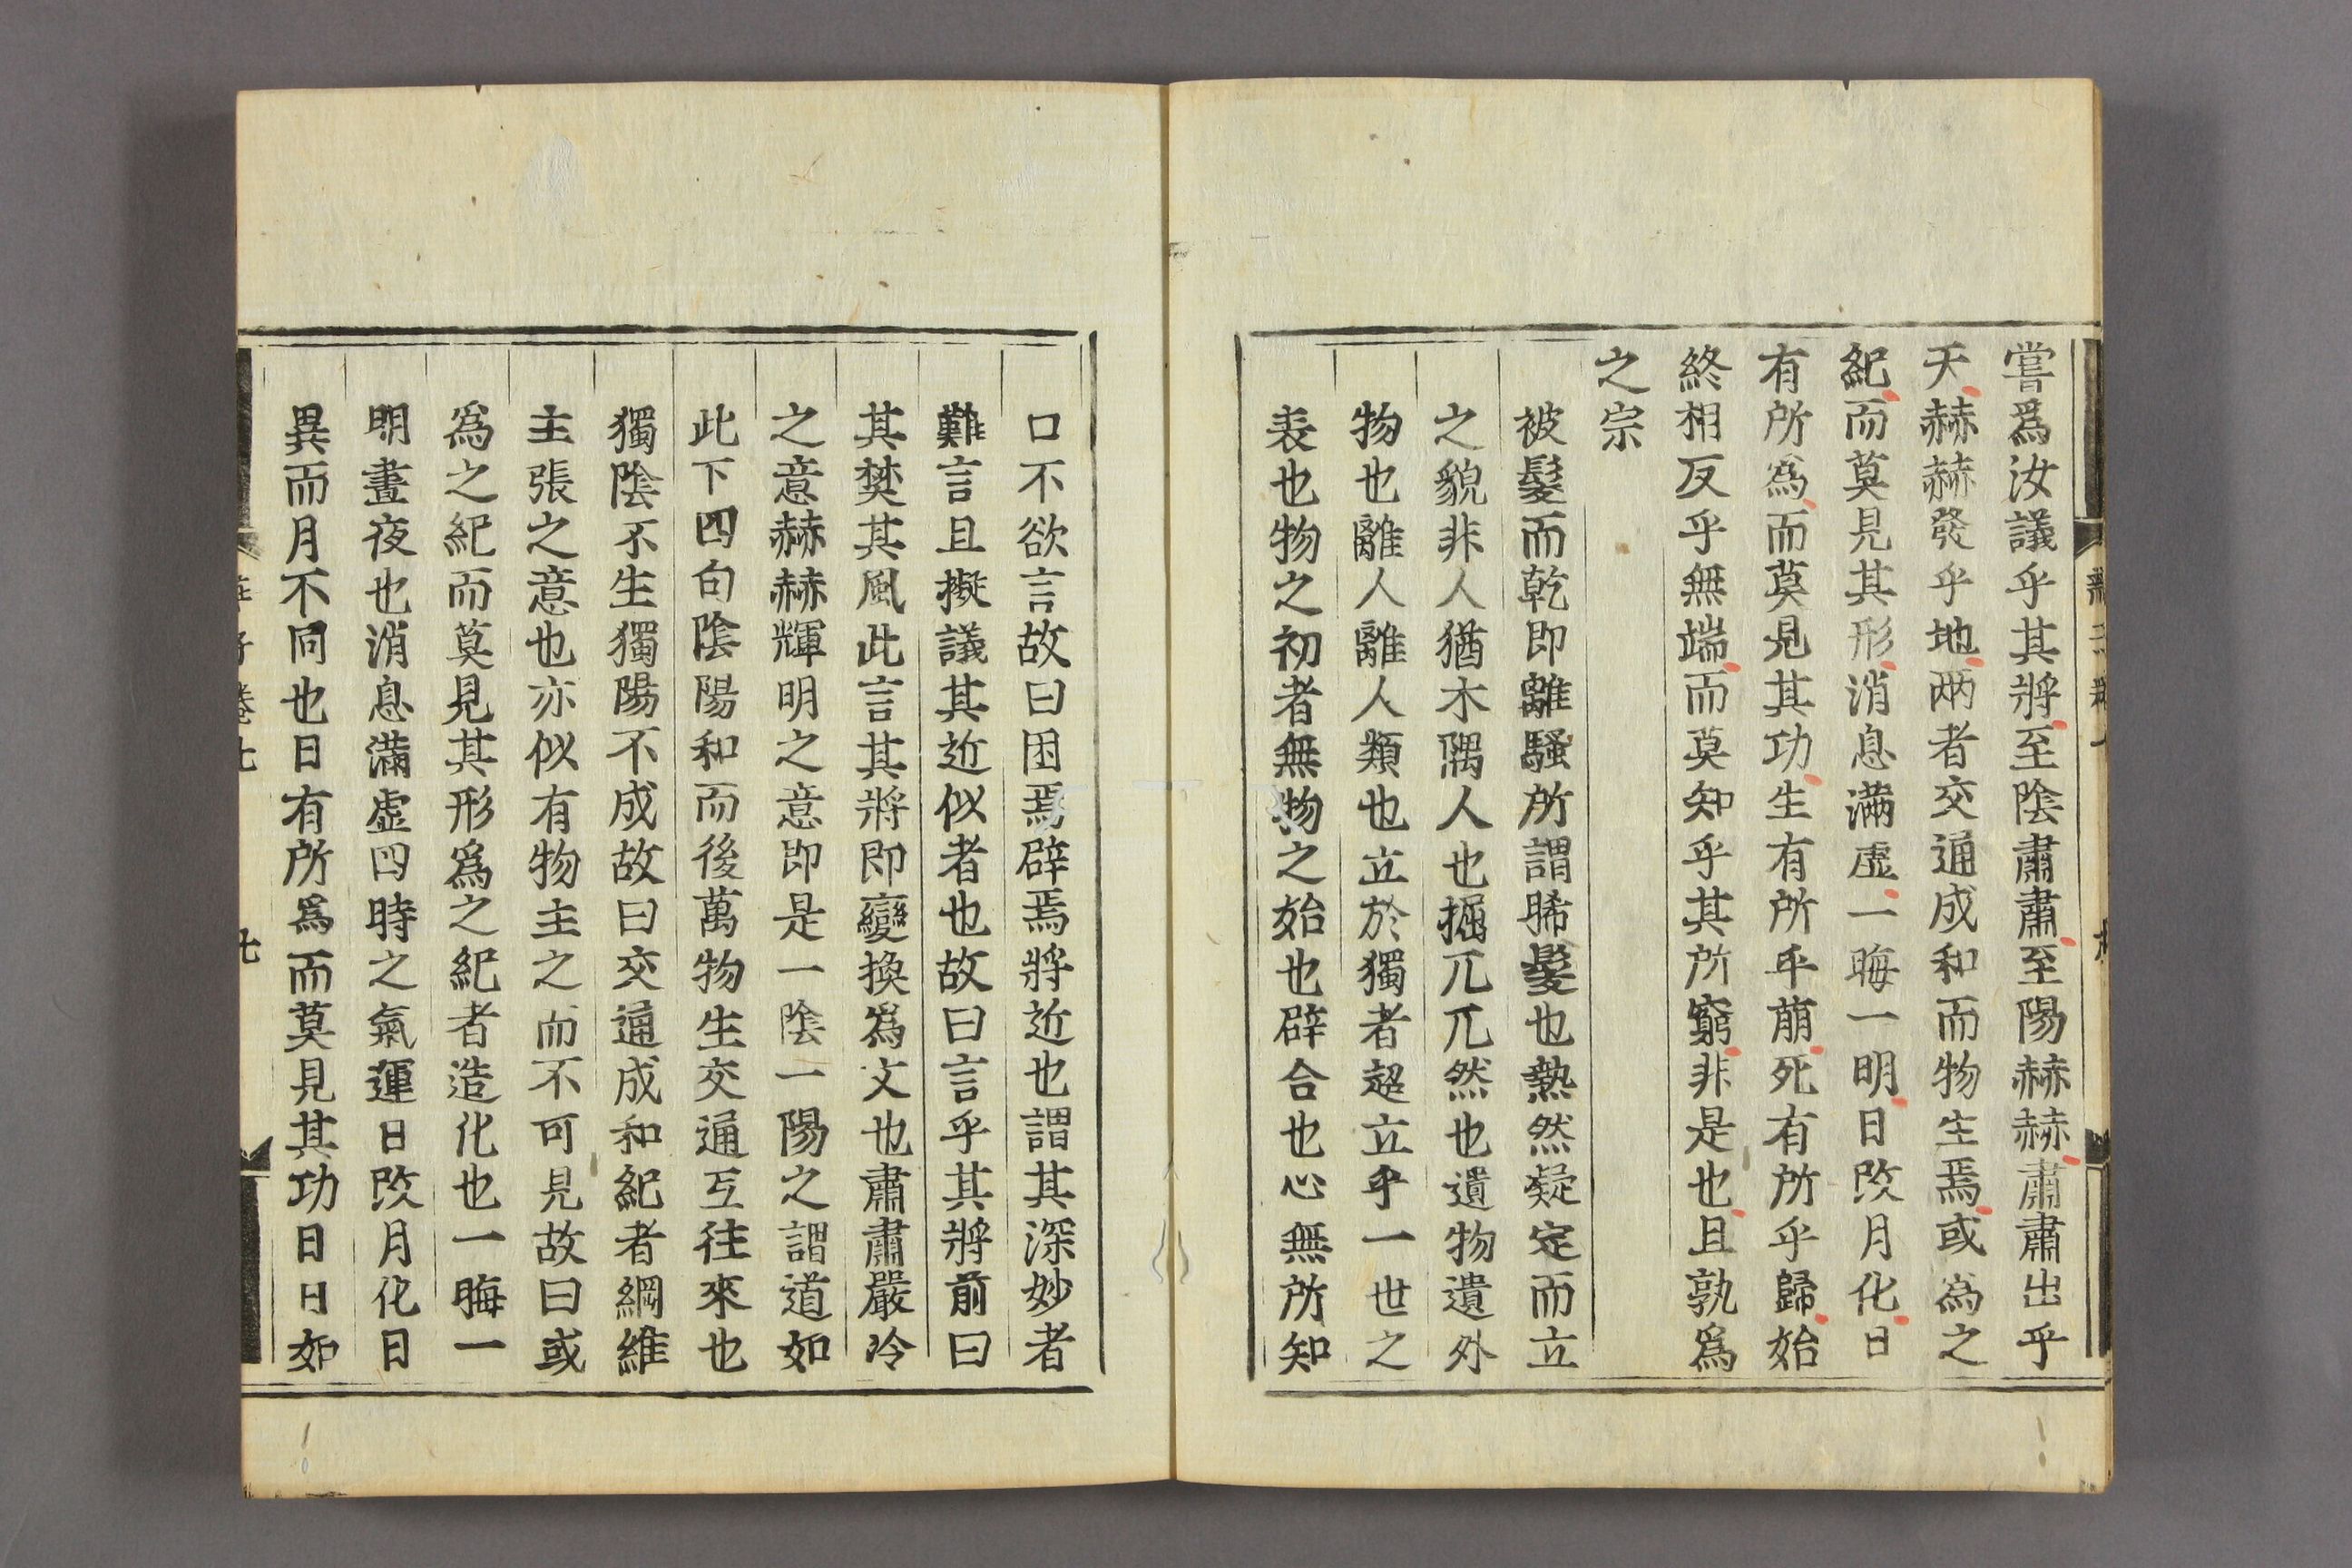 嘗爲汝議乎其將至陰肅肅至陽赫赫肅肅出乎
天赫赫發乎地两者交通成和而物生焉或為之
紀而莫見其形消息滿虛一晦一明日改月化日
有所為而莫見其功生有所乎萠死有所乎歸始
終相反乎無端而莫知乎其所窮非是也且孰爲
之宗
被髮而乾即離騷所謂晞髮也熱然凝定而立
之貌非人猶木隅人也掘兀兀然也遺物遺外
物也離人離人類也立於獨者超立乎一世之
表也物之初者無物之始也辟合也心無所知
口不欲言故曰困焉辟焉將近也謂其深妙者
難言且擬議其近似者也故曰言乎其將前曰
其焚其風此言其將即變換爲文也肅肅嚴冷
之意赫赫輝明之意即是一陰一陽之謂道如
此下四句陰陽和而後萬物生交通互往來也
獨陰不生獨陽不成故曰交通成和紀者綱維
主張之意也亦似有物主之而不可見故曰或
爲之紀而莫見其形爲之紀者造化也一晦一
明晝夜也消息滿虛四時之氣運日改月化日
異而月不同也日有所爲而莫見其功日日如